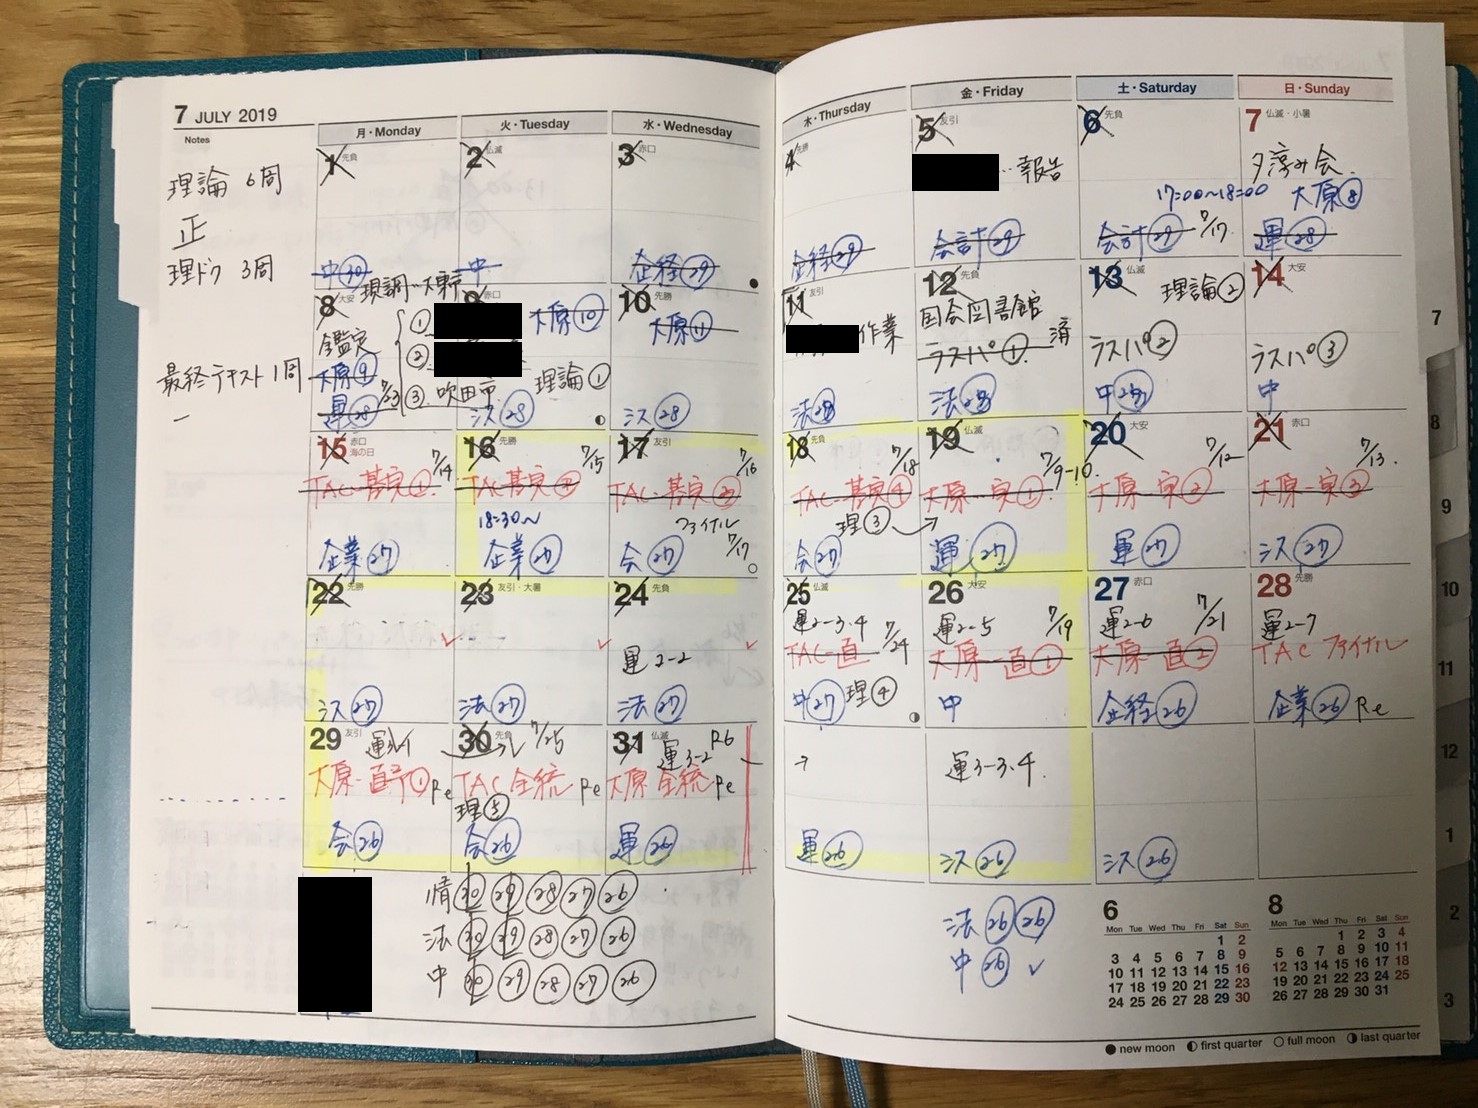 7 JULY 2019
Notes
理論 6周
正
理ドク 3周
最終テキスト1周
一
月・Monday
火・Tuesday
水・Wednesday
木・Thursday
金・Friday
土・Saturday
日・Sunday
1 先負
中㉚
2 仏滅
中
3 赤口
企経㉙
4 先勝
企経㉙
5 友引
…報告
会計㉙
6 先負
17:00〜18:00
会計㉙ 7/17
7 仏滅・小暑
夕涼み会
大原⑧
運㉘
8 大安
現調…大東市
鑑定
大原⑨
運㉘ 7/23
9 赤口
①
大原⑩
②
③ 吹田市
理論①
シス㉘
10 先勝
大原⑪
シス㉘
11 友引
作業
法㉘
12 先負
国会図書館
ラスパ① 済
法㉘
13 仏滅
理論②
ラスパ②
中㉘
14 大安
ラスパ③
中
15 赤口
海の日
7/14
TAC-基完①
企業㉗
16 先勝
7/15
TAC-基完②
18:30〜
企業㉗
17 友引
7/16
TAC-基完③
ファイナル
7/17
会㉗
18 先負
7/18
TAC-基完④
理③
会㉗
19 仏滅
7/9-10
大原-実①
運㉗
20 大安
7/12
大原-実②
運㉗
21 赤口
7/13
大原-実③
シス㉗
22 先勝
シス㉗
23 友引・大暑
法㉗
24 先負
運2-2
法㉗
25 仏滅
運2-3.4
TAC-直 7/24
中㉗ 理④
26 大安
運2-5 7/19
大原-直①
中
27 赤口
運2-6 7/21
大原-直②
企経㉖
28 先勝
運2-7
TAC ファイナル
企業㉖ Re
29 友引
大原-直予① Re
会㉖
30 先負
7/25
TAC 全統 Re
理⑤
会㉖
31 仏滅
運3-2
大原 全統 Re
運㉖
運㉖
運3-3.4
シス㉖
シス㉖
情㉚㉙㉘㉗㉖
法㉚㉙㉘㉗㉖
中㉚㉙㉘㉗㉖
法㉖㉖
中㉖ ✓
6
Mon Tue Wed Thu Fri Sat Sun
1 2
3 4 5 6 7 8 9
10 11 12 13 14 15 16
17 18 19 20 21 22 23
24 25 26 27 28 29 30
8
Mon Tue Wed Thu Fri Sat Sun
1 2 3 4
5 6 7 8 9 10 11
12 13 14 15 16 17 18
19 20 21 22 23 24 25
26 27 28 29 30 31
● new moon ◐ first quarter ○ full moon ◑ last quarter
7
8
9
10
11
12
1
2
3